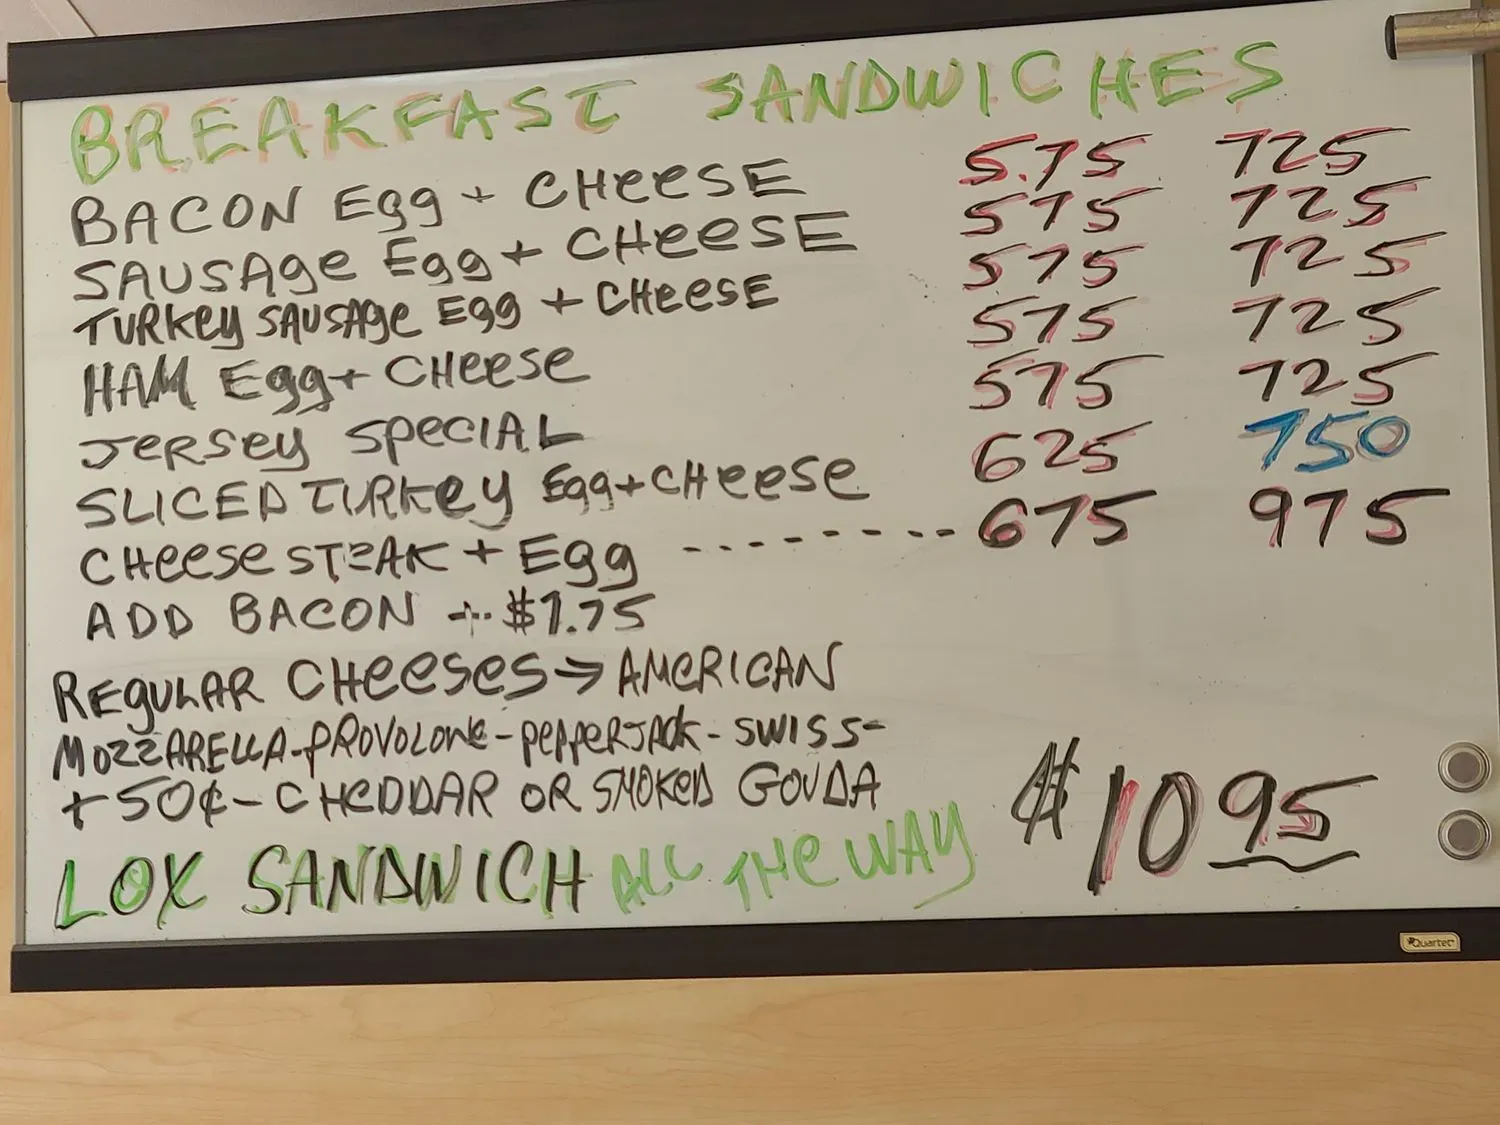 BREAKFAST SANDWICHES
BACON Egg + CHeeSE 5.75 725
SAUSAge Egg + CHeeSE 575 725
TURKey SAUSAge Egg + CHeeSE 575 725
HAM Egg + CHeese 575 725
JeRSey SPeCIAL 575 725
SLICED TURKey Egg + CHeeSe 625 750
CHeese STEAK + Egg -------- 675 975
ADD BACON -- $1.75
REgULAR CHeeSeS → AMeRICAN
MOZZARELLA - PROVOLONe - PepperJAck - SWISS -
+ 50¢ - CHeDDAR OR SMOKeD GOUDA
LOX SANDWICH ALL THe WAY $10 95
Quartet